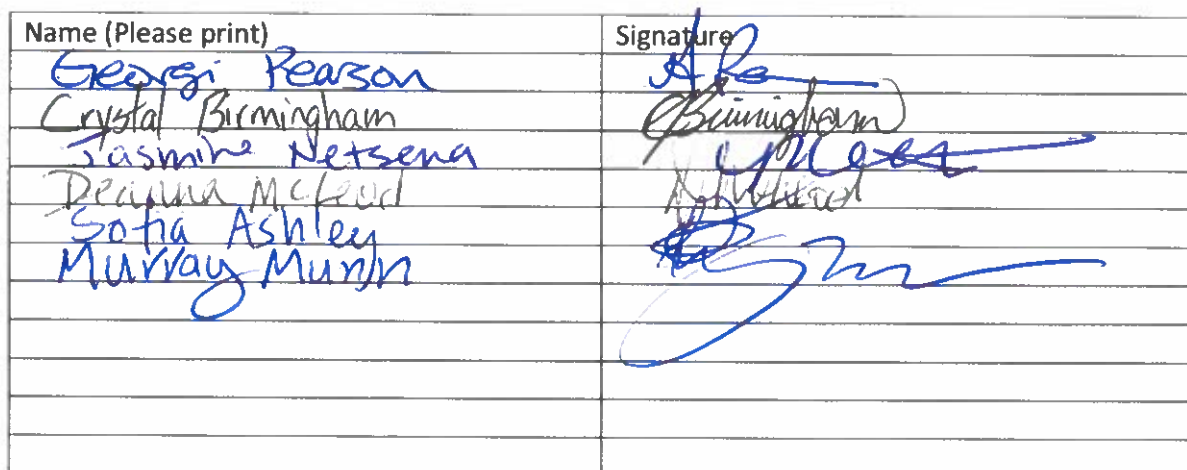 Name (Please print) Signature
Georgi Pearson
Crystal Birmingham CBirmingham
Jasmine Netsena
Deanna McLeod
Sofia Ashley
Murray Munn